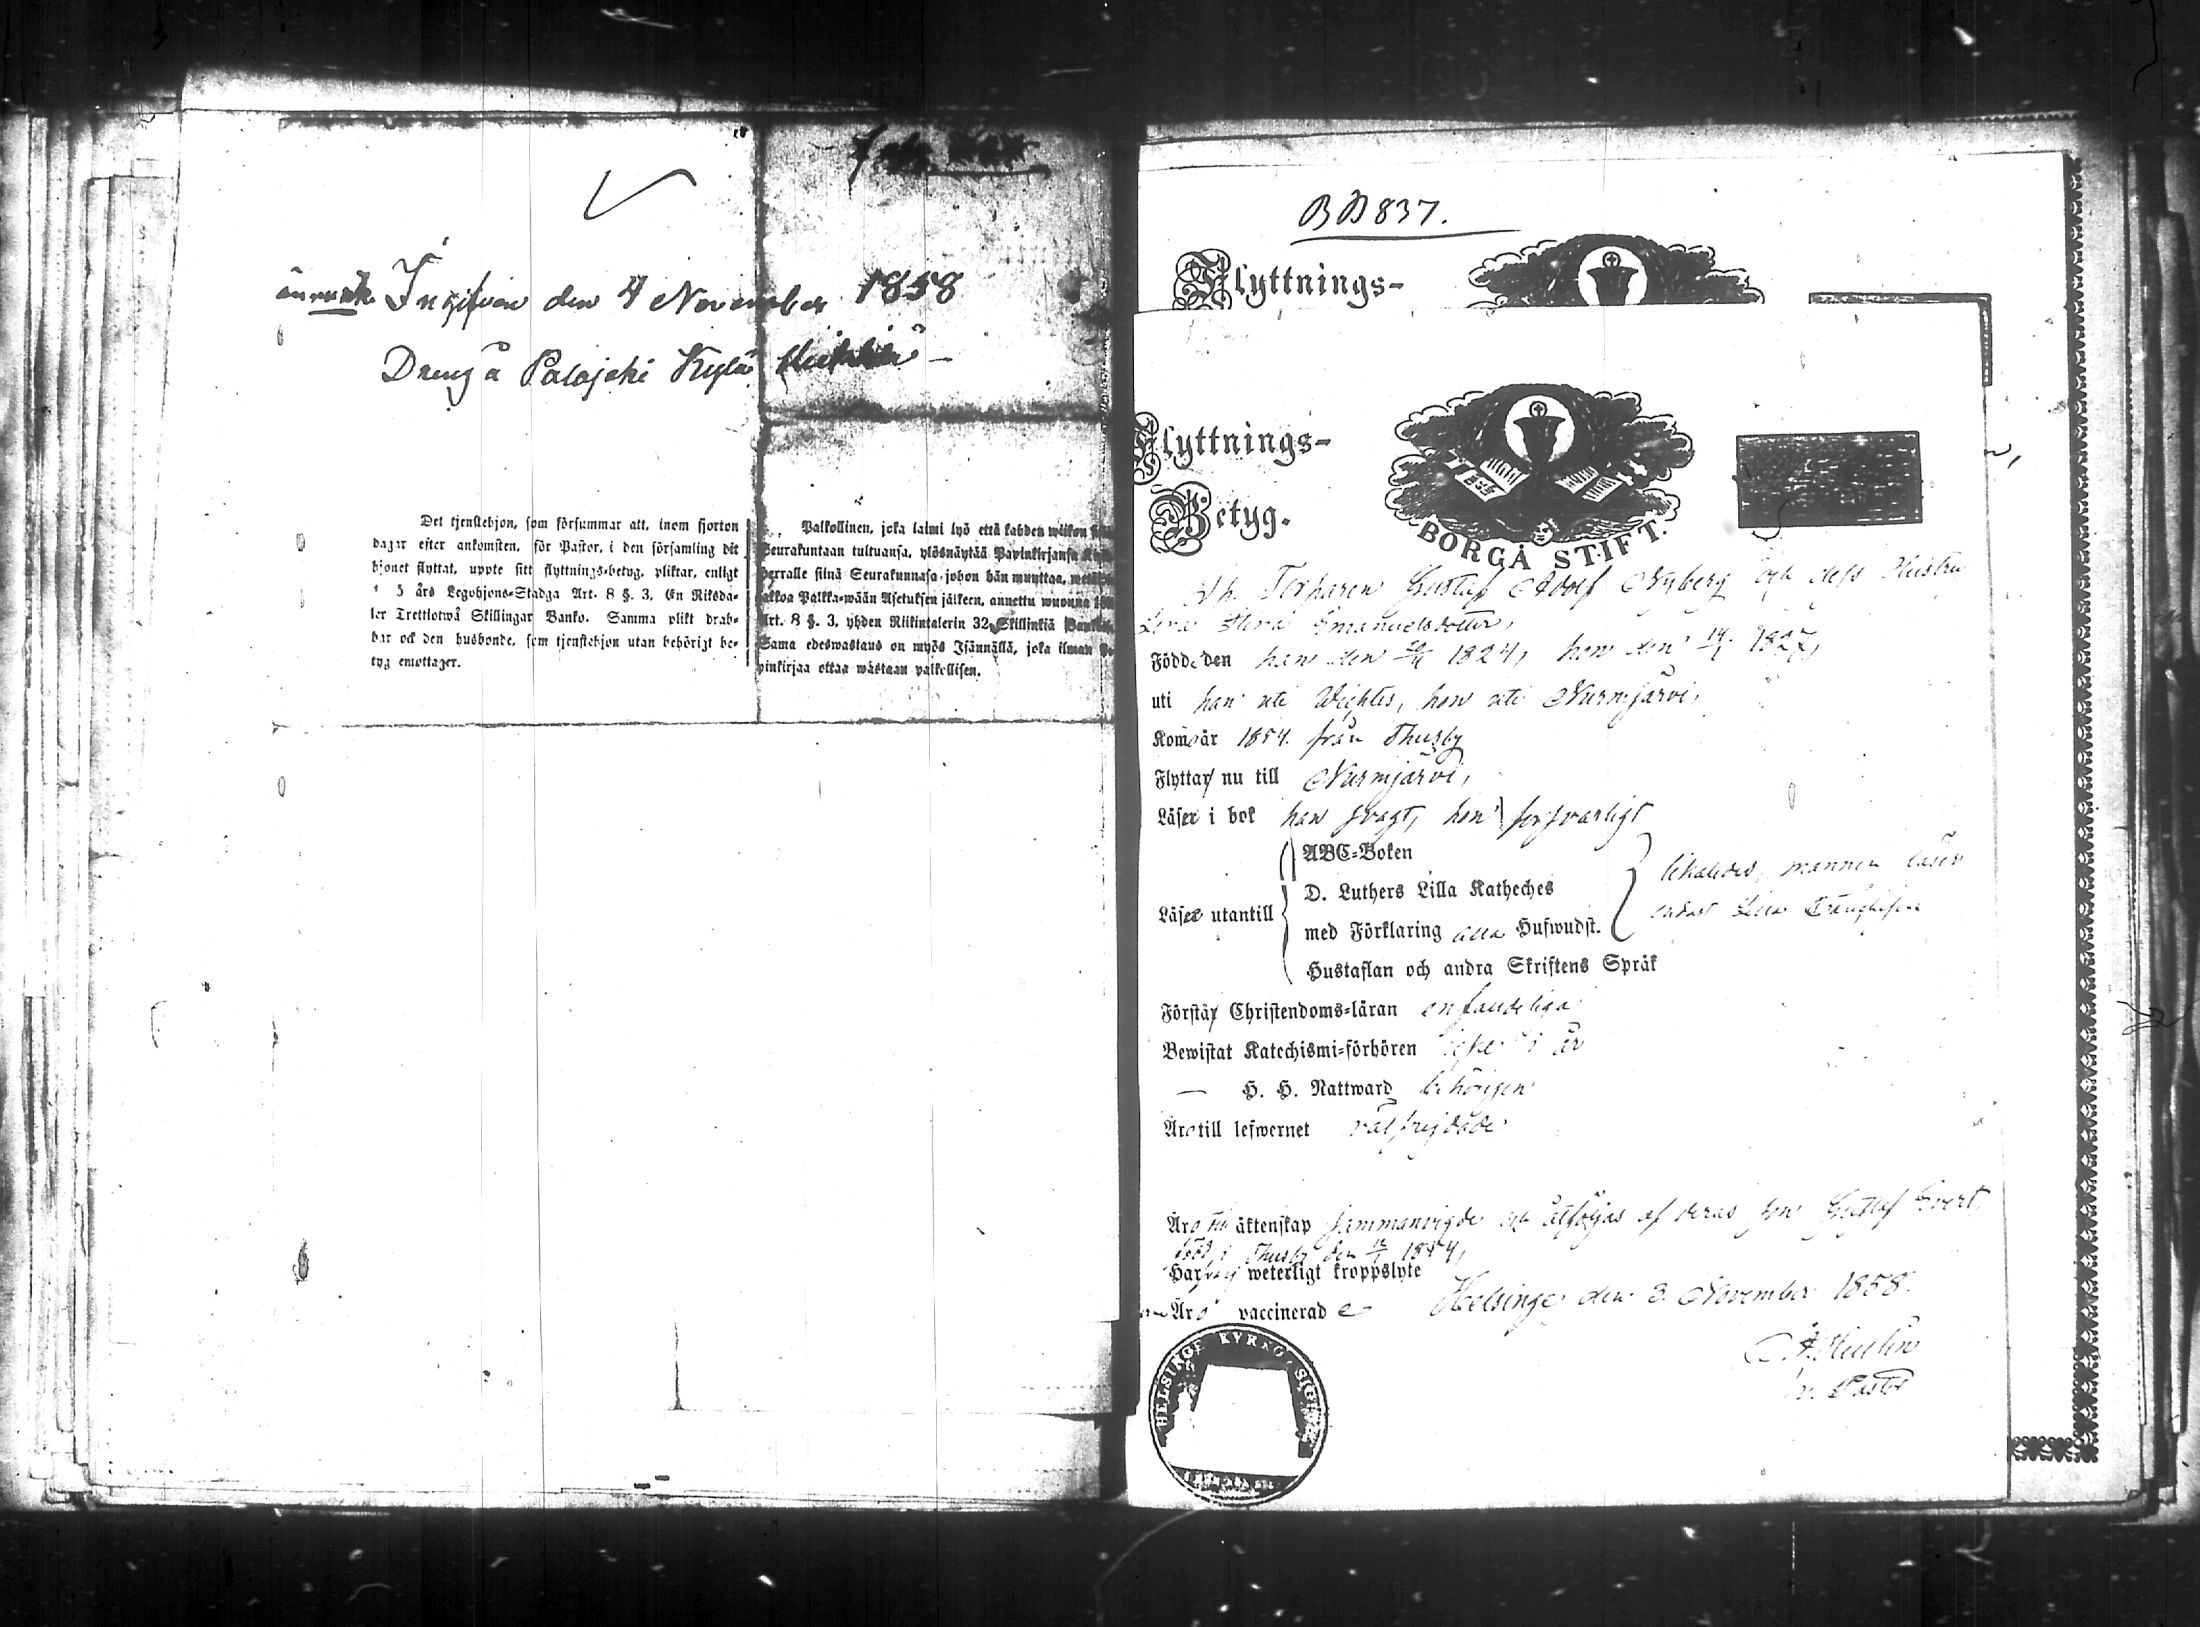 Ingifven den 4 November 1858
Dreng å Palajoki Kylä
Det tjenstehjon, som försummar att, inom fjorton
dagar efter ankomsten, för Pastor, i den församling dit
hjonet flyttat, uppte sitt flyttnings-betyg, pliktar, enligt
5 års Legohjons-Stadga Art. 8 §. 3, En Riksda-
ler Trettiotwå Skillingar Banko. Samma plikt drab-
bar ock den husbonde, som tjenstehjon utan behörigt be-
tyg emottager.
Palkollinen, joka laimi lyö että kahden wiikon
Seurakuntaan tultuansa, ylösnäyttää Papinkirjansa
herralle siinä Seurakunnasa johon hän muuttaa,
Palkka-wään Asetuksen jälkeen, annettu wuonna
Art. 8 §. 3, yhden Riikintalerin 32 Skillinkiä
Sama edeswastaus on myös Isännällä, joka ilman
pinkirjaa ottaa wastaan palkollisen.
BB 837.
Flyttnings-
Flyttnings-
Betyg.
BORGÅ STIFT.
Torparen Gustaf Adolf Nyberg och dess Hustru
Emanuelsdotter,
Födde den han den 1824, hon den 14/1 1827,
uti han uti Wichtis, hon uti Nurmijärvi,
Kom år 1854. från Thusby
Flytta nu till Nurmijärvi,
Läser i bok han svagt, hon försvarligt
ABC-Boken
D. Luthers Lilla Katheches
likaledes, mannen läser
Läser utantill
endast Lilla
med Förklaring alla Hufwudst.
Hustaflan och andra Skriftens Språk
Förstå Christendoms-läran enfaldeliga
Bewistat Katechismi-förhören i år
— H. H. Nattward behörigen
Äro till lefwernet välfrejdade
Äro äktenskap sammanvigde och åtföljas af deras son Gustaf Evert,
född i Thusby den 12/1 1854,
Har ej weterligt kroppslyte
Äro vaccinerade Helsinge den 3. November 1858.
v. Pastor
HELSINGE KYRKO SIGILL